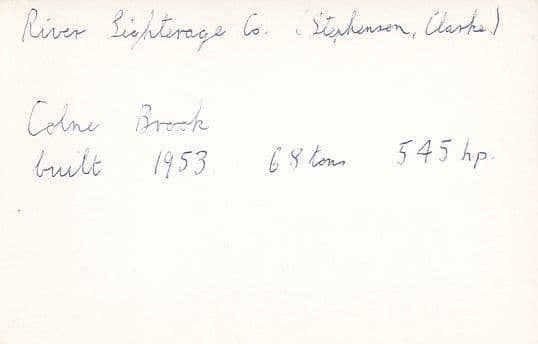 River Lighterage Co. (Stephenson, Clarke)
Colne Brook
built 1953. 68 tons 545 hp.